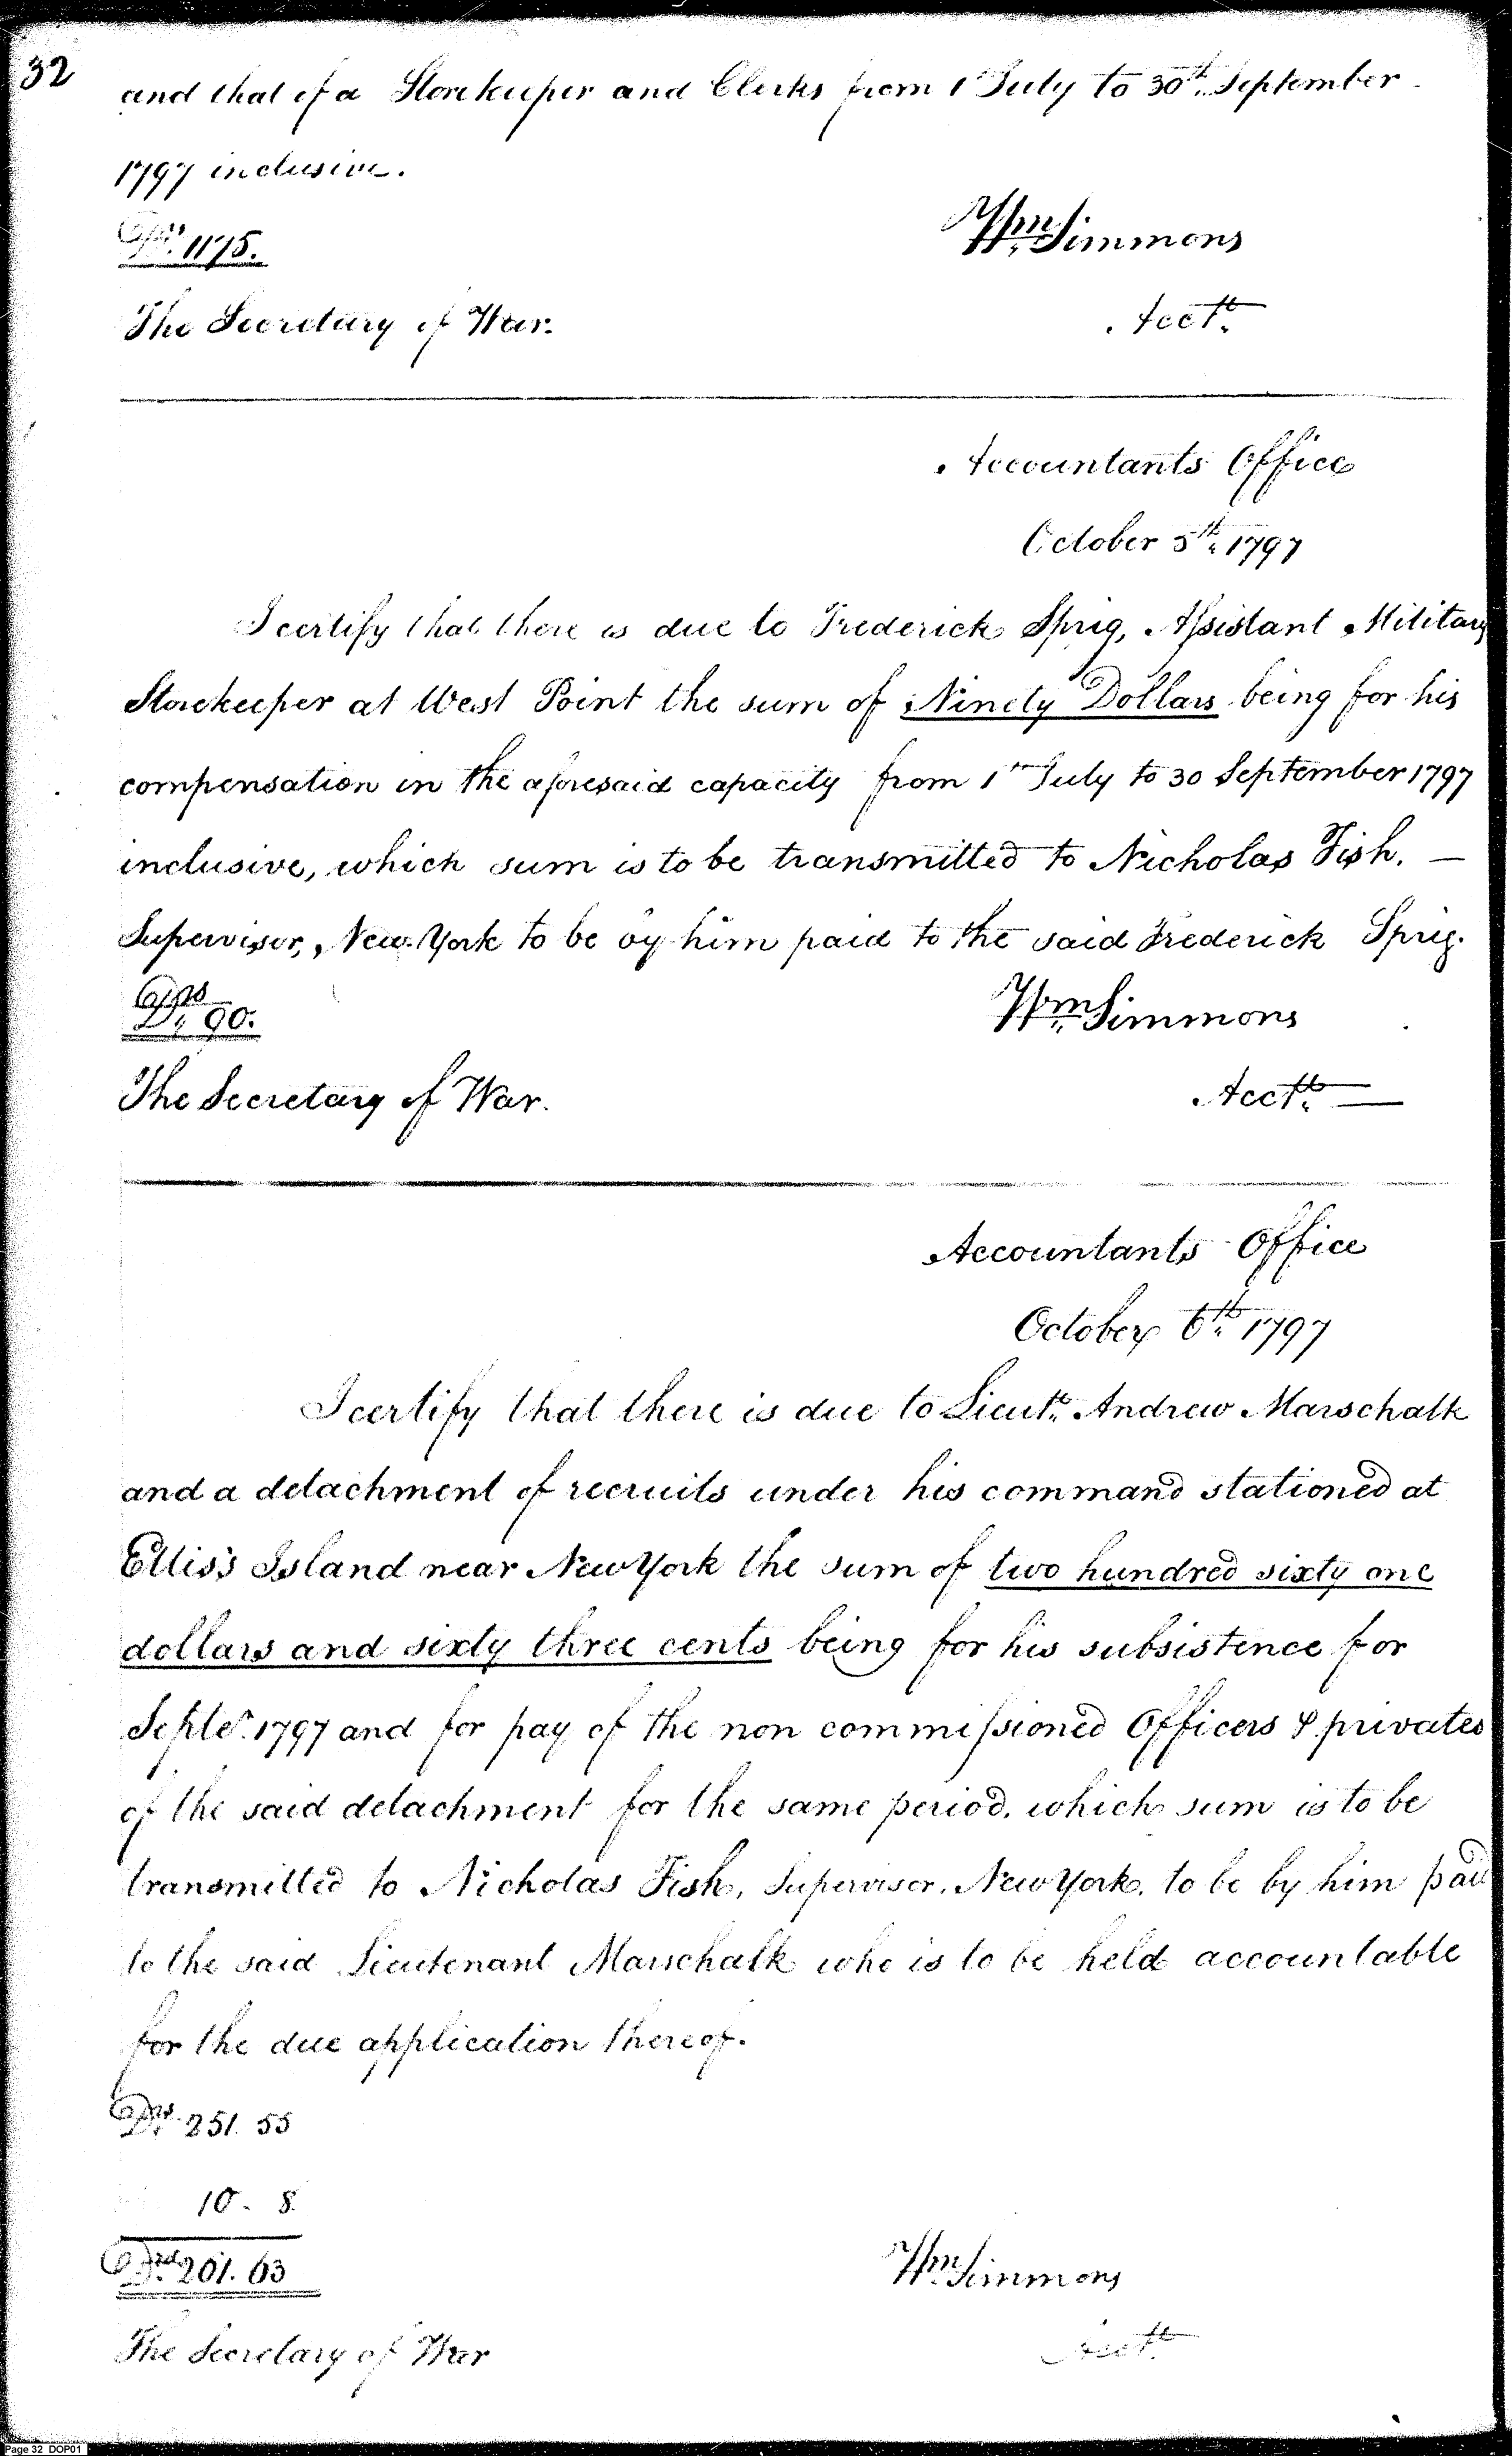 32
and that of a Storekeeper and Clerks from 1st July to 30th September
1797 inclusive.
Drs. 1175.
Wm Simmons
The Secretary of War.
Acctt.
Accountants Office
October 5th 1797
I certify that there is due to Frederick Sprig, Assistant Military
Storekeeper at West Point the sum of Ninety Dollars being for his
compensation in the aforesaid capacity from 1st July to 30 September 1797
inclusive, which sum is to be transmitted to Nicholas Fish. —
Supervisor, New York to be by him paid to the said Frederick Sprig.
Drs. 90.
Wm Simmons
The Secretary of War.
Acctt. —
Accountants Office
October 6th 1797
I certify that there is due to Lieutt. Andrew Marschalk
and a detachment of recruits under his command stationed at
Ellis's Island near New York the sum of two hundred sixty one
dollars and sixty three cents being for his subsistence for
Septer. 1797 and for pay of the non commissioned Officers & privates
of the said detachment for the same period, which sum is to be
transmitted to Nicholas Fish, Supervisor, New York, to be by him paid
to the said Lieutenant Marschalk who is to be held accountable
for the due application thereof.
Drs. 251. 55
10. 8.
Drs. 261. 63
Wm Simmons
The Secretary of War
Acctt.
Page 32 DOP01